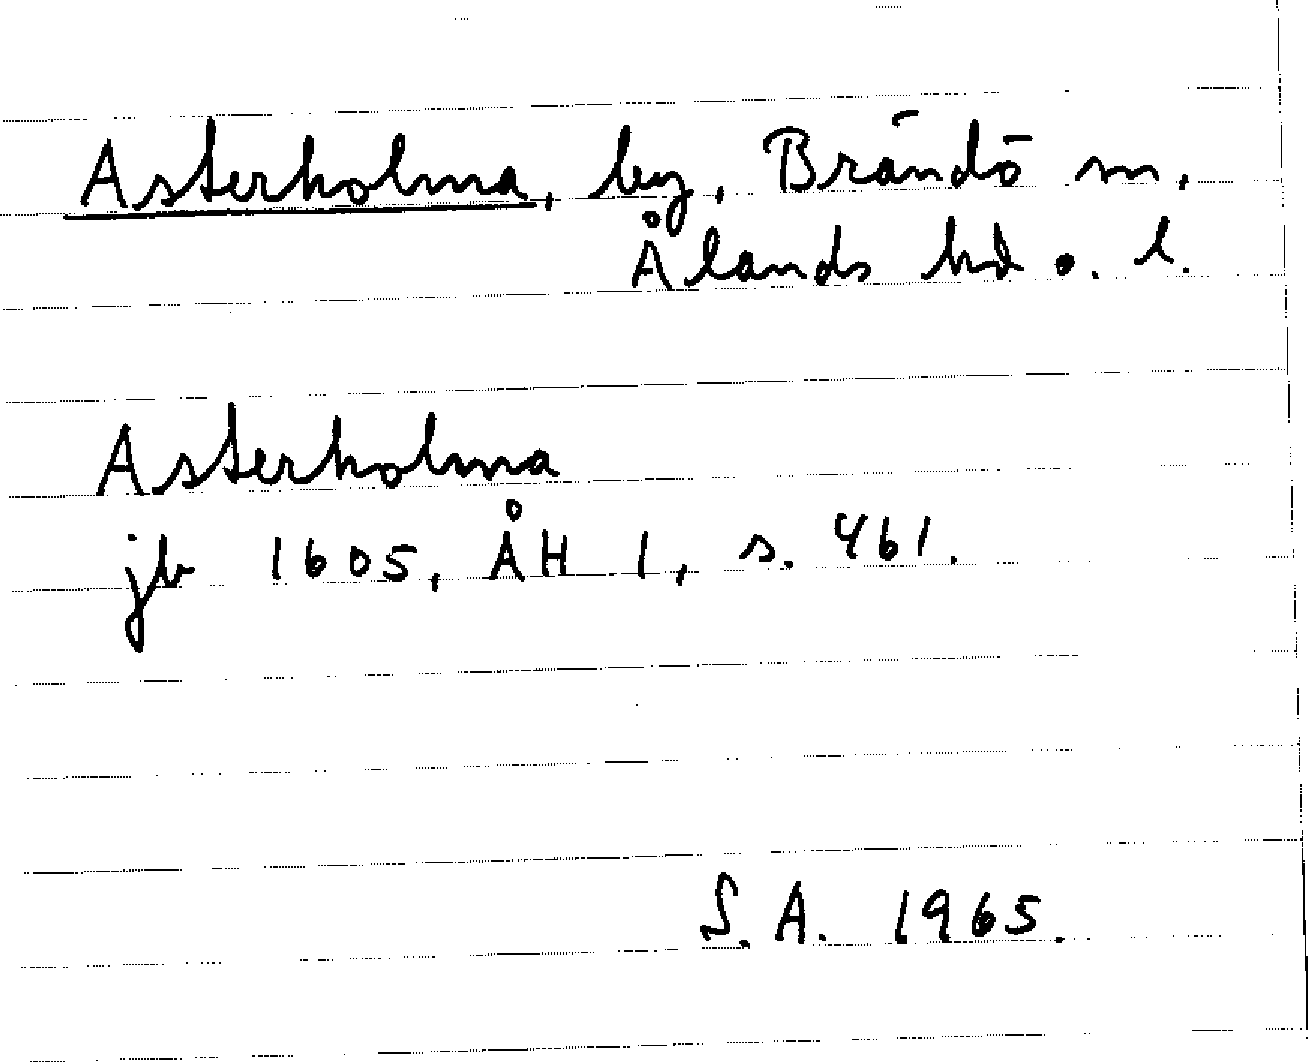 Asterholma, by, Brändö sn,
Ålands hd o. l.
Asterholma
jb 1605, ÅH 1, s. 461.
S.A. 1965.